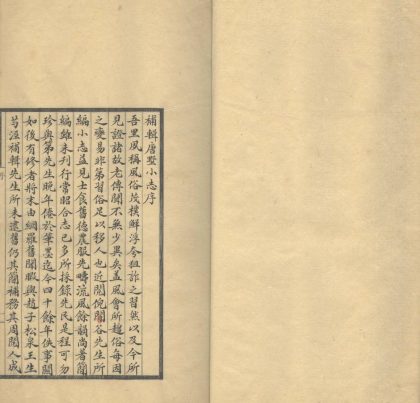 補輯唐墅小志序
吾里夙稱風俗茂樸鮮浮夸狙詐之習然以今所
見證諸故老傳聞不無少異矣蓋風會所趨俗每因
之變易非第習俗足以移人也近閱倪閬谷先生所
編小志益見士食舊德農服先疇流風餘韻尚著簡
編雖未刊行常昭合志已多所採錄先民是程可勿
珍與第先生晚年倦於筆墨迄今四十餘年佚事闕
如後有修者將末由網羅舊聞職與趙子松泉王生
芎洰補輯先生所未逮舊仍其簡補務其周閱人成
序